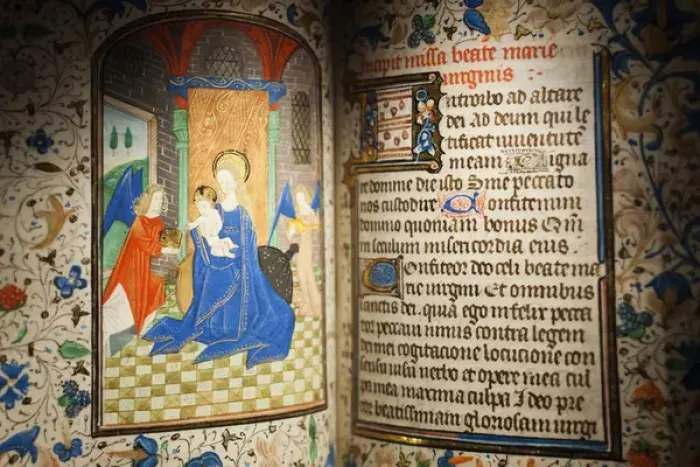 Incipit missa beate marie
uirginis
Introibo ad altare
dei Ad deum qui le
tificat iuuentutē
meam Digna
re domine die isto Sine peccato
nos custodire Confitemini
domino quoniam bonus Qm̄
in seculum misericordia eius
Confiteor deo celi beate ma
rie uirgini Et omnibus
sanctis dei. quia ego infelix pecca
tor peccaui nimis contra legem
dei mei cogitacione locucione con
sensu uisu uerbo et opere mea cul
pa mea maxima culpa Ideo pre
cor beatissimam gloriosam uirgi